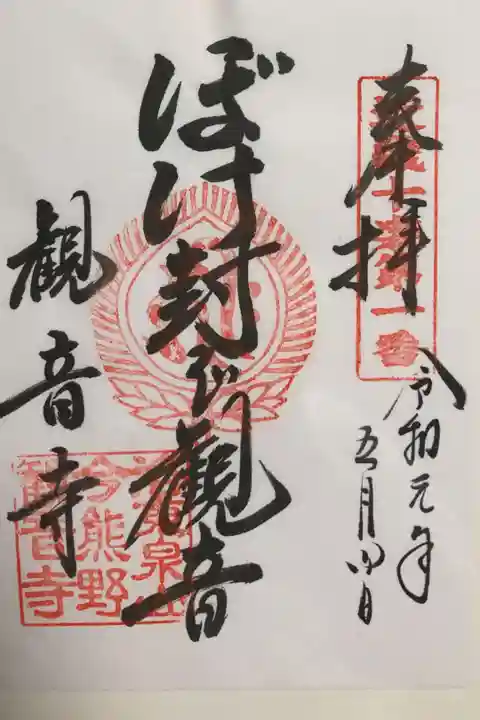 奉拝
令和元年
五月四日
ぼけ封じ観音
観音寺
第一番
泉山
今熊野
観音寺